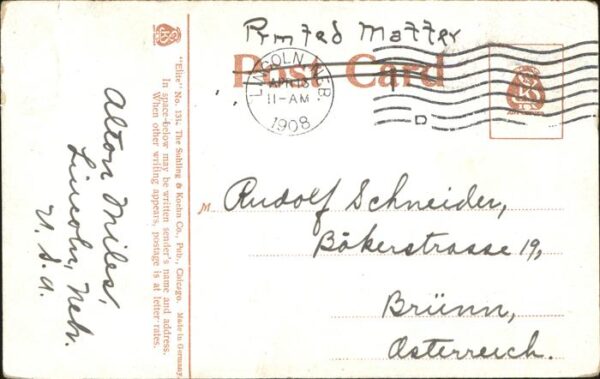 Printed Matter
Post Card
LINCOLN, NEB.
11-AM
1908
D
Rudolf Schneider,
Bäkerstrasse 19,
Brünn,
Österreich.
"Elite" No. 131. The Suhling & Koehn Co., Pub., Chicago. Made in Germany.
In space below may be written sender's name and address.
When other writing appears, postage is at letter rates.
Alton Miles,
Lincoln, Neb.
U. S. A.